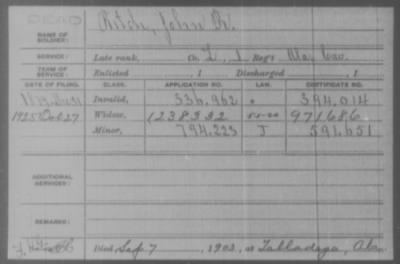 DEAD
NAME OF SOLDIER: Ritch, John R.
SERVICE: Late rank, Co. L, 1 Reg't Ala. Cav.
TERM OF SERVICE: Enlisted , 1 Discharged , 1
DATE OF FILING. CLASS. APPLICATION NO. LAW. CERTIFICATE NO.
Invalid, 536.962 394.014
1925 Oct 27 Widow, 1238332 971686
Minor, 794.223 J 591.651
ADDITIONAL SERVICES:
REMARKS:
Died Sep 7, 1902, at Talladega, Ala.